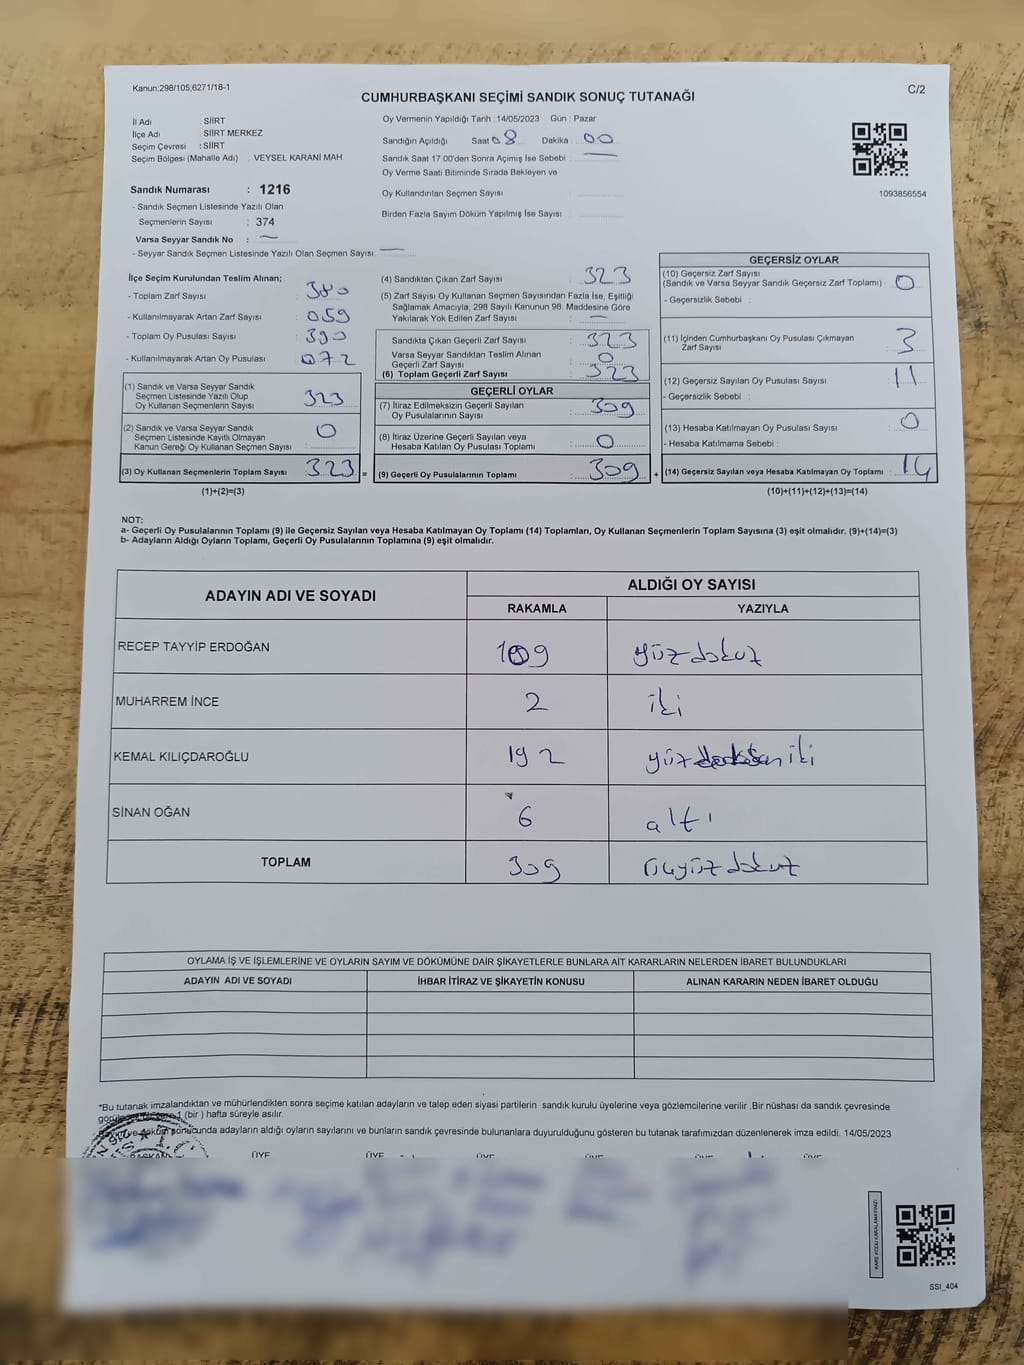 Kanun:298/105,6271/18-1
C/2
CUMHURBAŞKANI SEÇİMİ SANDIK SONUÇ TUTANAĞI
İl Adı : SİİRT
İlçe Adı : SİİRT MERKEZ
Seçim Çevresi : SİİRT
Seçim Bölgesi (Mahalle Adı) : VEYSEL KARANİ MAH.
Oy Vermenin Yapıldığı Tarih : 14/05/2023 Gün : Pazar
Sandığın Açıldığı Saat 08 Dakika : 00
Sandık Saat 17:00'den Sonra Açımış İse Sebebi : —
Oy Verme Saati Bitiminde Sırada Bekleyen ve
Oy Kullandırılan Seçmen Sayısı :
Birden Fazla Sayım Döküm Yapılmış İse Sayısı :
1093856554
Sandık Numarası : 1216
- Sandık Seçmen Listesinde Yazılı Olan
Seçmenlerin Sayısı : 374
Varsa Seyyar Sandık No : —
- Seyyar Sandık Seçmen Listesinde Yazılı Olan Seçmen Sayısı: —
İlçe Seçim Kurulundan Teslim Alınan;
- Toplam Zarf Sayısı : 380
- Kullanılmayarak Artan Zarf Sayısı : 059
- Toplam Oy Pusulası Sayısı : 390
- Kullanılmayarak Artan Oy Pusulası : 072
(1) Sandık ve Varsa Seyyar Sandık
Seçmen Listesinde Yazılı Olup
Oy Kullanan Seçmenlerin Sayısı : 323
(2) Sandık ve Varsa Seyyar Sandık
Seçmen Listesinde Kayıtlı Olmayan
Kanun Gereği Oy Kullanan Seçmen Sayısı : 0
(3) Oy Kullanan Seçmenlerin Toplam Sayısı : 323
(1)+(2)=(3)
(4) Sandıktan Çıkan Zarf Sayısı : 323
(5) Zarf Sayısı Oy Kullanan Seçmen Sayısından Fazla İse, Eşitliği
Sağlamak Amacıyla; 298 Sayılı Kanunun 98. Maddesine Göre
Yakılarak Yok Edilen Zarf Sayısı : —
Sandıkta Çıkan Geçerli Zarf Sayısı : 323
Varsa Seyyar Sandıktan Teslim Alınan
Geçerli Zarf Sayısı : 0
(6) Toplam Geçerli Zarf Sayısı : 323
GEÇERLİ OYLAR
(7) İtiraz Edilmeksizin Geçerli Sayılan
Oy Pusulalarının Sayısı : 309
(8) İtiraz Üzerine Geçerli Sayılan veya
Hesaba Katılan Oy Pusulası Toplamı : 0
= (9) Geçerli Oy Pusulalarının Toplamı : 309 +
GEÇERSİZ OYLAR
(10) Geçersiz Zarf Sayısı
(Sandık ve Varsa Seyyar Sandık Geçersiz Zarf Toplamı) : 0
- Geçersizlik Sebebi :
(11) İçinden Cumhurbaşkanı Oy Pusulası Çıkmayan
Zarf Sayısı : 3
(12) Geçersiz Sayılan Oy Pusulası Sayısı : 11
- Geçersizlik Sebebi :
(13) Hesaba Katılmayan Oy Pusulası Sayısı : 0
- Hesaba Katılmama Sebebi :
(14) Geçersiz Sayılan veya Hesaba Katılmayan Oy Toplamı : 14
(10)+(11)+(12)+(13)=(14)
NOT:
a- Geçerli Oy Pusulalarının Toplamı (9) ile Geçersiz Sayılan veya Hesaba Katılmayan Oy Toplamı (14) Toplamları, Oy Kullanan Seçmenlerin Toplam Sayısına (3) eşit olmalıdır. (9)+(14)=(3)
b- Adayların Aldığı Oyların Toplamı, Geçerli Oy Pusulalarının Toplamına (9) eşit olmalıdır.
ADAYIN ADI VE SOYADI ALDIĞI OY SAYISI
RAKAMLA YAZIYLA
RECEP TAYYİP ERDOĞAN 109 yüzdokuz
MUHARREM İNCE 2 iki
KEMAL KILIÇDAROĞLU 192 yüz iki
SİNAN OĞAN 6 altı
TOPLAM 309 üçyüzdokuz
OYLAMA İŞ VE İŞLEMLERİNE VE OYLARIN SAYIM VE DÖKÜMÜNE DAİR ŞİKAYETLERLE BUNLARA AİT KARARLARIN NELERDEN İBARET BULUNDUKLARI
ADAYIN ADI VE SOYADI İHBAR İTİRAZ VE ŞİKAYETİN KONUSU ALINAN KARARIN NEDEN İBARET OLDUĞU
*Bu tutanak imzalandıktan ve mühürlendikten sonra seçime katılan adayların ve talep eden siyasi partilerin sandık kurulu üyelerine veya gözlemcilerine verilir .Bir nüshası da sandık çevresinde
1 (bir ) hafta süreyle asılır.
sonucunda adayların aldığı oyların sayılarını ve bunların sandık çevresinde bulunanlara duyurulduğunu gösteren bu tutanak tarafımızdan düzenlenerek imza edildi. 14/05/2023
BAŞKAN ÜYE ÜYE ÜYE ÜYE ÜYE ÜYE
KARE KODU KARALAMAYINIZ!
SSI_404